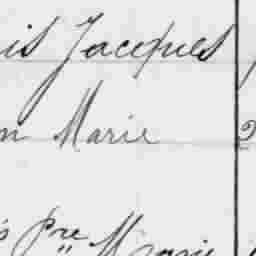 is Jacques
n Marie 2
s Pre Marie